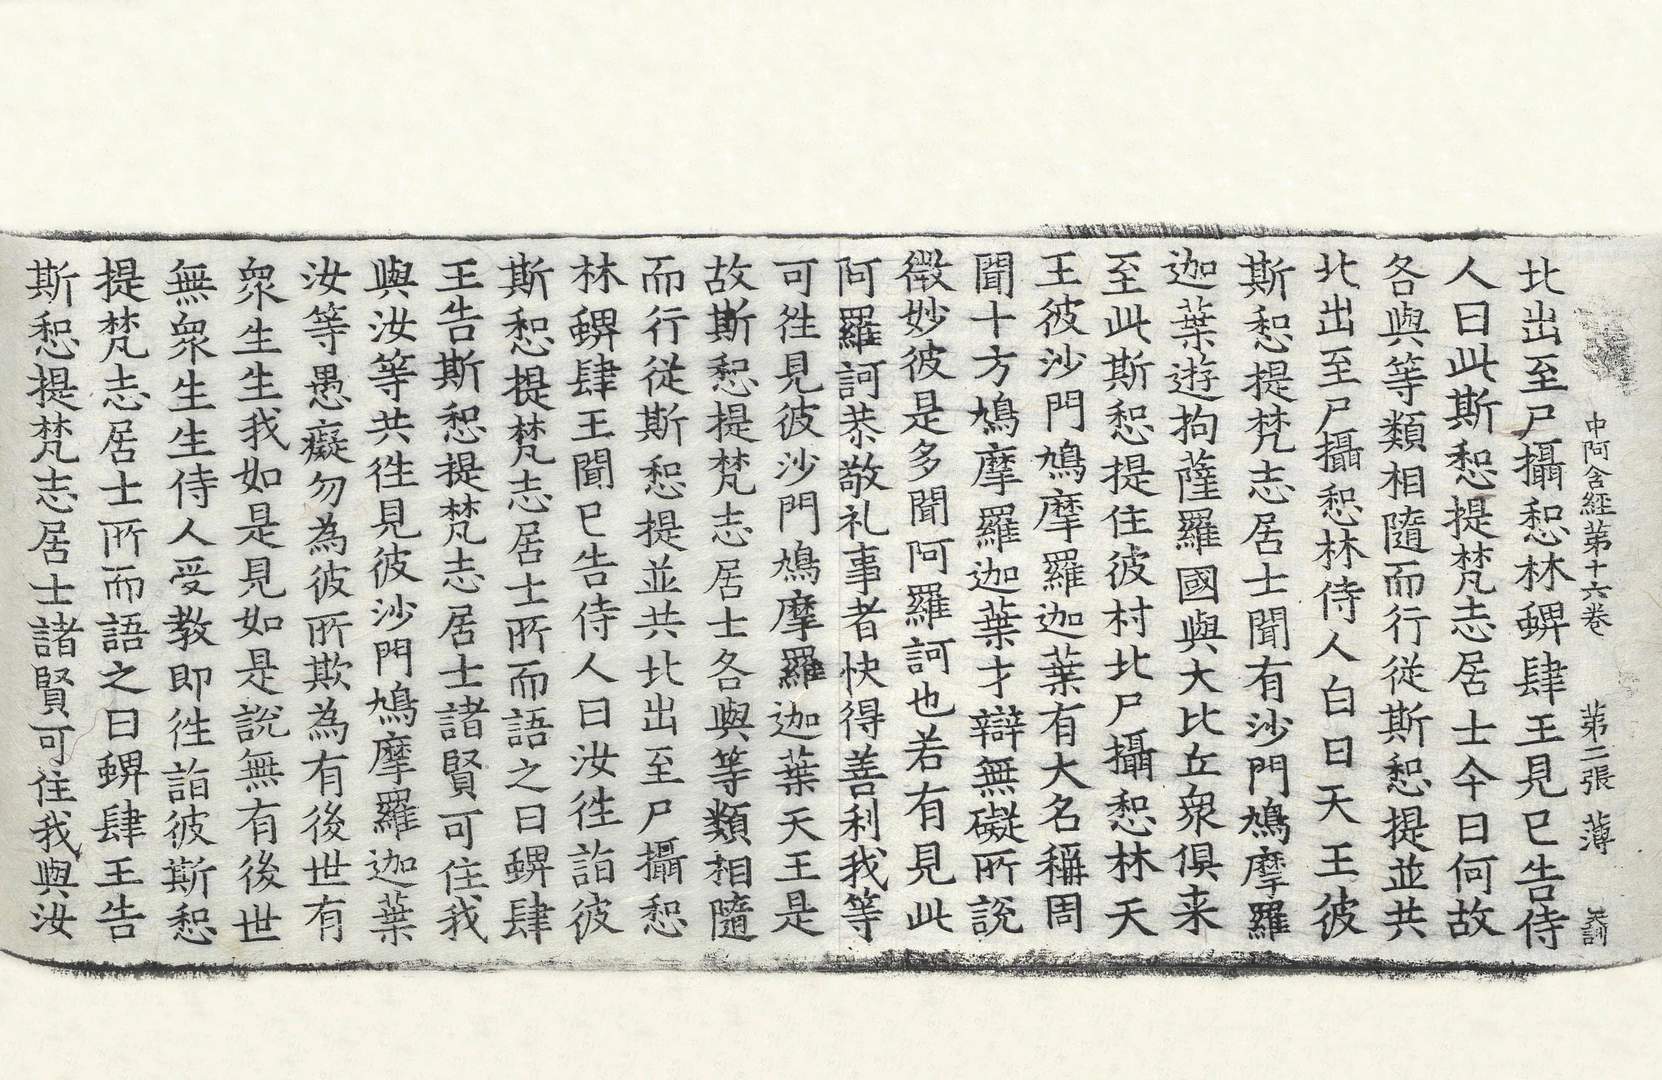 中阿含經第十六卷 第二張 薄
北出至尸攝惒林蜱肆王見已告侍
人曰此斯惒提梵志居士今日何故
各與等類相隨而行從斯惒提並共
北出至尸攝惒林侍人白曰天王彼
斯惒提梵志居士聞有沙門鳩摩羅
迦葉遊拘薩羅國與大比丘衆俱来
至此斯惒提住彼村北尸攝惒林天
王彼沙門鳩摩羅迦葉有大名稱周
聞十方鳩摩羅迦葉才辯無礙所說
微妙彼是多聞阿羅訶也若有見此
阿羅訶恭敬礼事者快得善利我等
可往見彼沙門鳩摩羅迦葉天王是
故斯惒提梵志居士各與等類相隨
而行從斯惒提並共北出至尸攝惒
林蜱肆王聞已告侍人曰汝往詣彼
斯惒提梵志居士所而語之曰蜱肆
王告斯惒提梵志居士諸賢可住我
與汝等共往見彼沙門鳩摩羅迦葉
汝等愚癡勿為彼所欺為有後世有
衆生生我如是見如是說無有後世
無衆生生侍人受教即往詣彼斯惒
提梵志居士所而語之曰蜱肆王告
斯惒提梵志居士諸賢可住我與汝